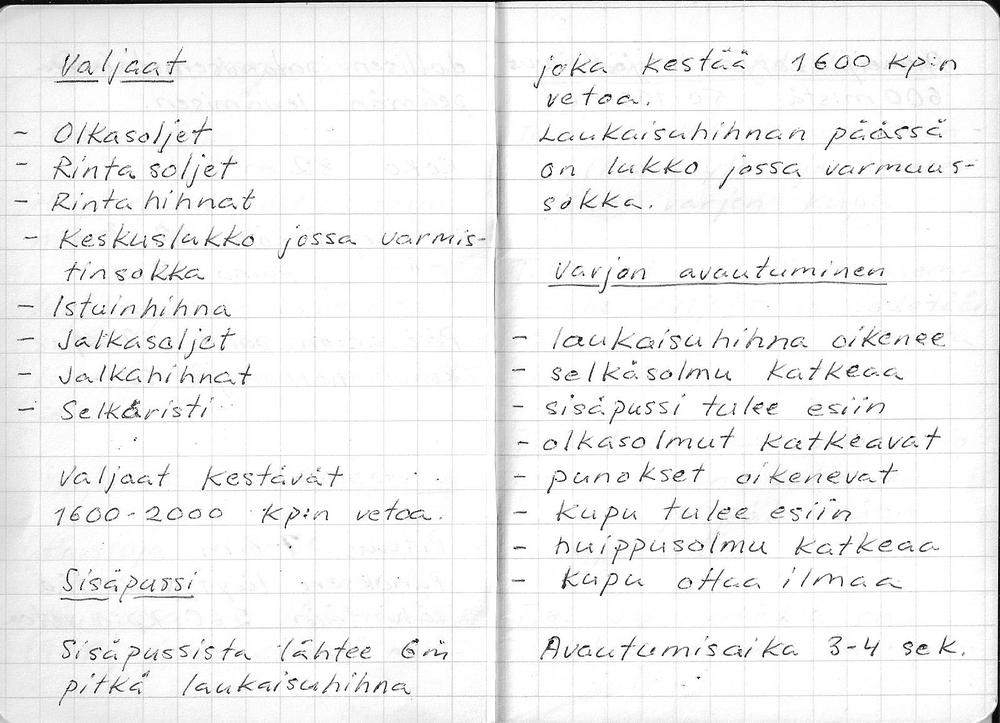 Valjaat
- Olkasoljet
- Rintasoljet
- Rintahihnat
- Keskuslukko jossa varmis-
tinsokka
- Istuinhihna
- Jalkasoljet
- Jalkahihnat
- Selkäristi
Valjaat kestävät
1600-2000 kp:n vetoa.
Sisäpussi
Sisäpussista lähtee 6 m
pitkä laukaisuhihna
joka kestää 1600 kp:n
vetoa.
Laukaisuhihnan päässä
on lukko jossa varmuus-
sokka.
Varjon avautuminen
- laukaisuhihna oikenee
- selkäsolmu katkeaa
- sisäpussi tulee esiin
- olkasolmut katkeavat
- punokset oikenevat
- kupu tulee esiin
- huippusolmu katkeaa
- kupu ottaa ilmaa
Avautumisaika 3-4 sek.